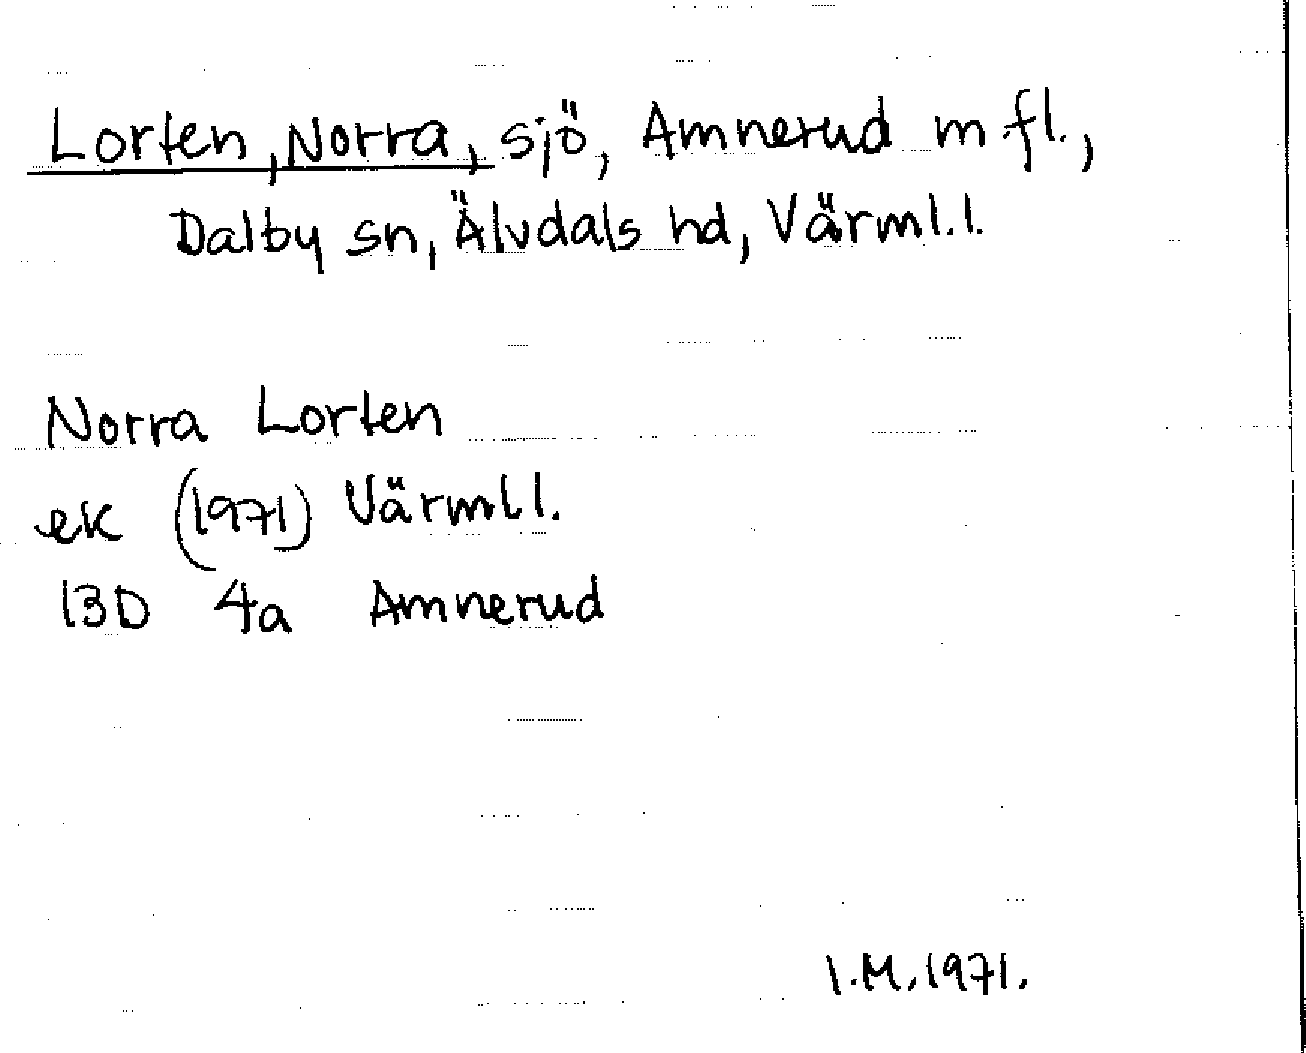 Lorten, Norra, sjö, Amnerud m fl.,
Dalby sn, Älvdals hd, Värml.l.
Norra Lorten
ek (1971) Värml l.
13D 4a Amnerud
I.M. 1971.